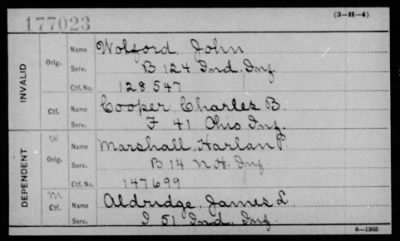 177023
(3-H-4)
INVALID
Orig.
Name Wolford, John
Serv. B 124 Ind. Inf.
Ctf. No. 128547
Ctf.
Name Cooper, Charles B.
Serv. F 41 Ohio Inf.
DEPENDENT
W
Orig.
Name Marshall, Harlan P.
Serv. B 14 N.H. Inf.
Ctf. No. 147699
M
Ctf.
Name Aldridge, James L.
Serv. I 51 Ind. Inf.
6-1303